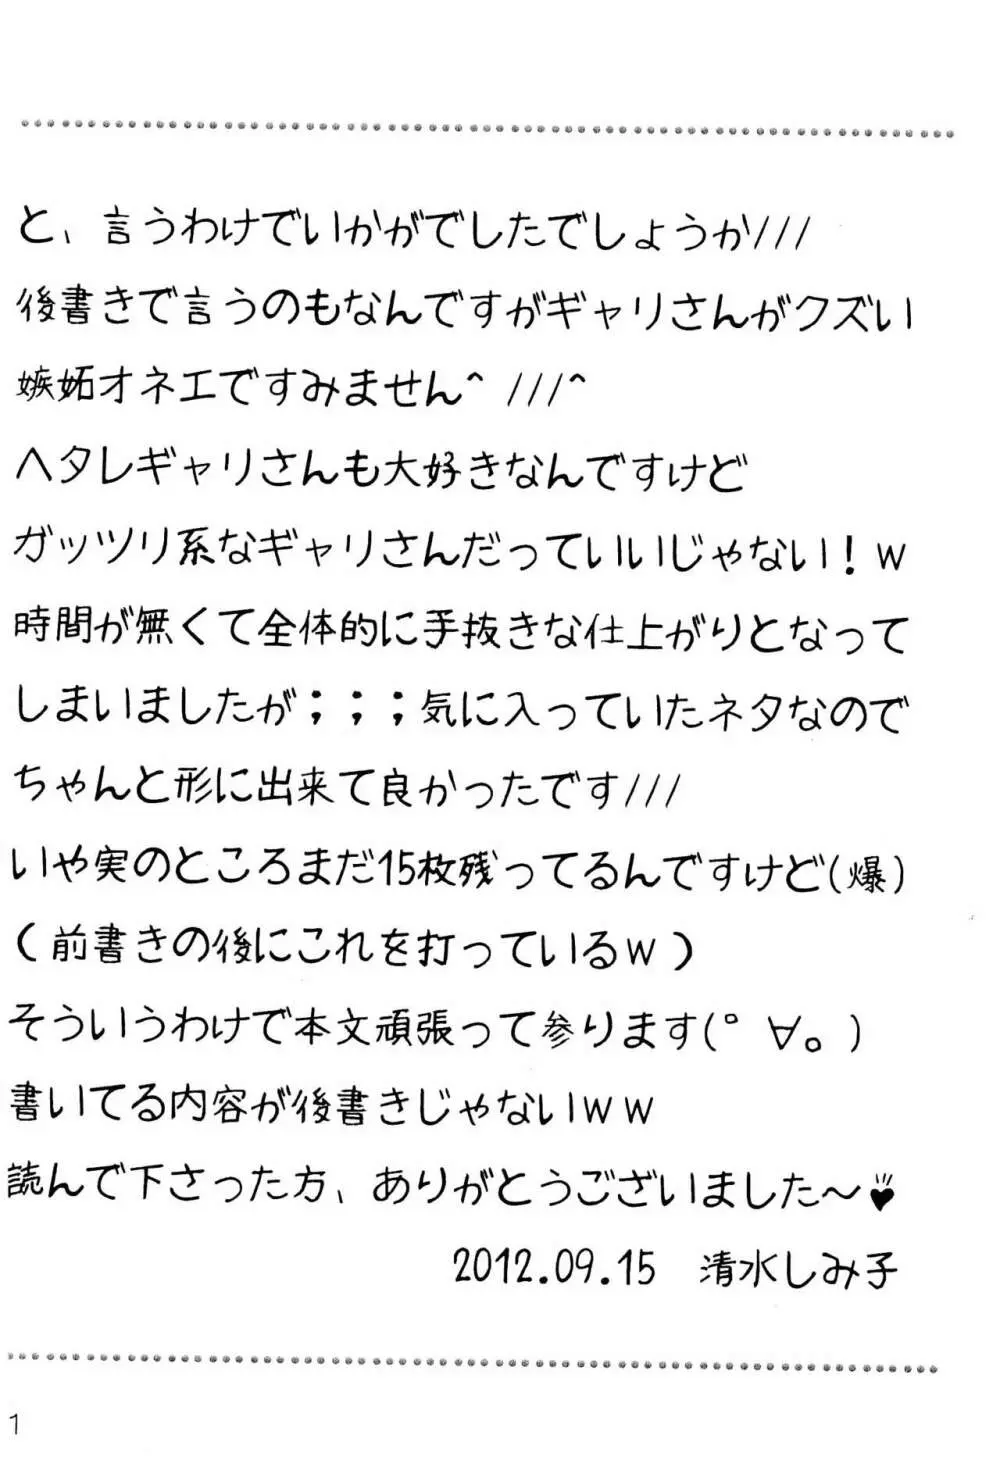 と、言うわけでいかがでしたでしょうか///
後書きで言うのもなんですがギャリさんがクズい
嫉妬オネエですみません^ ///^
ヘタレギャリさんも大好きなんですけど
ガッツリ系なギャリさんだっていいじゃない！w
時間が無くて全体的に手抜きな仕上がりとなって
しまいましたが；；；気に入っていたネタなので
ちゃんと形に出来て良かったです///
いや実のところまだ15枚残ってるんですけど(爆)
(前書きの後にこれを打っているw)
そういうわけで本文頑張って参ります(゜∀。)
書いてる内容が後書きじゃないww
読んで下さった方、ありがとうございました～♥
2012.09.15 清水しみ子
1